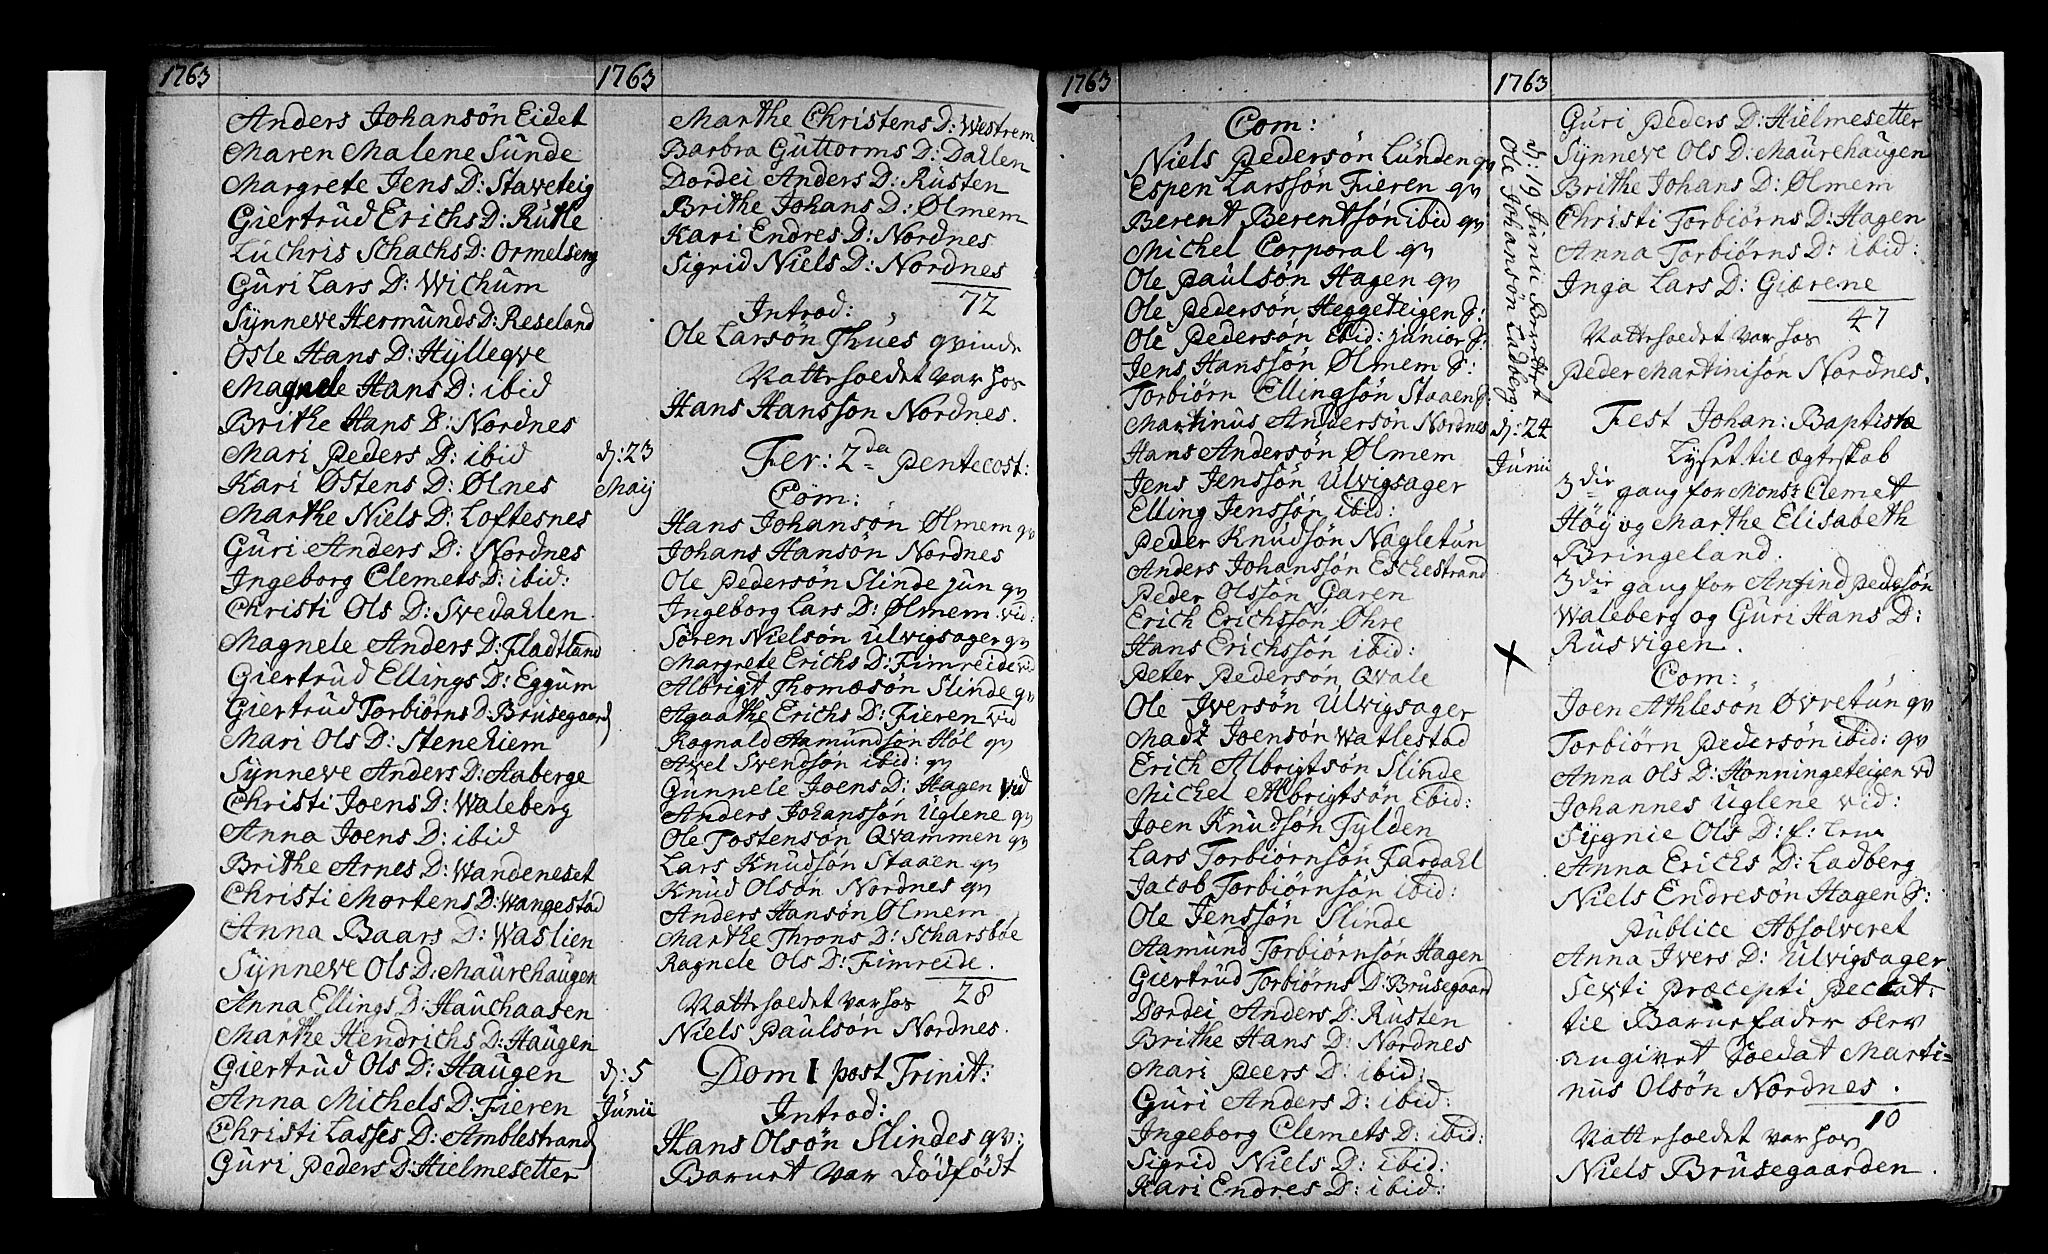 1763
Anders Johansøn Eidet
Maren Malene Sunde
Margrete Jens D: Staveteig
Giertrud Erichs D: Rutle
Luchris Schachs D: Ormelseng
Guri Lars D: Wichum
Synneve Hermunds D: Reseland
Osle Hans D: Hylleqve
Magnele Hans D: ibid
Brithe Hans D: Nordnes
Mari Peders D: ibid
Kari Østens D: Ølnes
Marthe Niels D: Loftesnes
Guri Anders D: Nordnes
Ingeborg Clemets D: ibid:
Christi Ols D: Svedahlen
Magnele Anders D: Fladtland
Giertrud Ellings D: Eggum
Giertrud Torbiørns D: Brusegaard
Mari Ols D: Stenehiem
Synneve Anders D: Aaberge
Christi Joens D: Waleberg
Anna Joens D: ibid
Brithe Arnes D: Wandeneset
Christi Mortens D: Wangestad
Anna Baars D: Waslien
Synneve Ols D: Maurehaugen
Anna Ellings D: Hauchaasen
Marthe Hendrichs D: Haugen
Giertrud Ols D: Haugen
Anna Michels D: Fieren
Christi Lasses D: Amblestrand
Guri Peders D: Hielmesetter
1763
Marthe Christens D: Westrem
Barbra Guttorms D: Dahlen
Dordei Anders D: Rusten
Brithe Johans D: Ølmem
Kari Endres D: Nordnes
Sigrid Niels D: Nordnes
72
Introd:
Ole Larsøn Thues qvinde
Vattersoedet var hos
Hans Hansson Nordnes.
d: 23 Maij
Fer: 2da Pentecost:
Com:
Hans Johansøn Ølmem qv
Johans Hansøn Nordnes
Ole Pedersøn Slinde jun qv
Ingeborg Lars D: Ølmem vid:
Søren Nielsøn Ulvigsager qv
Margrete Erichs D: Fimreide vid
Albrigt Thomæsøn Slinde qv
Agaathe Erichs D: Fieren vid
Ragnald Aamundsøn Høl qv
Axel Svendsøn ibid: qv
Gunnele Joens D: Hagen vid
Anders Johanssøn Uglene qv
Ole Tostensøn Qvammen qv
Lars Knudsøn Staaen qv
Knud Olsøn Nordnes qv
Anders Hansøn Ølmem
Marthe Throns D: Scharsbøe
Ragnele Ols D: Fimreide.
28
Vattersoedet var hos
Niels Paulsøn Nordnes.
d: 5 Junii
Dom 1 post Trinit:
Introd:
Hans Olsøn Slindes qv:
Barnet var dødfødt
1763
Com:
Niels Pedersøn Lunden qv
Espen Larssøn Fieren qv
Berent Berentsøn ibid qv
Michel Corporal qv
Ole Paulsøn Hagen qv
Ole Pedersøn Heggeteigen S:
Ole Pedersøn Ibid: junior S:
Jens Hanssøn Ølmem S:
Torbiørn Ellingsøn Staaen S:
Martinus Andersøn Nordnes
Hans Andersøn Ølmem
Jens Jenssøn Ulvigsager
Elling Jenssøn ibid:
Peder Knudsøn Nagletun
Anders Johanssøn Eschestrand
Peder Olssøn Garen
Erich Erichssøn Øhre
Hans Erichssøn ibid:
Peter Pedersøn Qvale
Ole Iversøn Ulvigsager
Madz Joensøn Watlestad
Erich Albrigtsøn Slinde
Michel Albrigtsøn ibid:
Joen Knudsøn Fylden
Lars Torbiørnsøn Fardahl
Jacob Torbiørnsøn ibid:
Ole Jenssøn Slinde
Aamund Torbiørnsøn Hagen
Giertrud Torbiørns D: Brusegaard
Dordei Anders D: Rusten
Brithe Hans D: Nordnes
Mari Peers D: ibid:
Guri Anders D: ibid:
Ingeborg Clemets D: ibid:
Sigrid Niels D: ibid:
Kari Endres D: ibid:
1763
d: 19 Junii
Ole Johansøn Ladberg
Guri Peders D: Hielmesetter
Synneve Ols D: Maurehaugen
Brithe Johans D: Ølmem
Christi Torbiørns D: Hagen
Anna Torbiørns D: ibid:
Inga Lars D: Giærene
47
Vattersoedet var hos
Peder Martinisøn Nordnes.
d: 24 Junii
Fest Johan: Baptistæ
Lyset til ægteskab
3die gang for Monsr Clemet
Høy og Marthe Elisabeth
Bringeland.
3die gang for Anfind Pedersøn
Waleberg og Guri Hans D:
Rusvigen.
Com:
Joen Athlesøn Øvretun qv
Torbiørn Pedersøn ibid: qv
Anna Ols D: Honningeteigen vd
Johannes Uglene vid:
Sygnie Ols D: f:
Anna Erichs D: Ladberg
Niels Endresøn Hagen S:
Publice Absolveret
Anna Ivers D: Ulvigsager
Sexti Præcepti Peccat:
til Barnefader blev
angivet Soldat Marti-
nus Olsøn Nordnes.
10
Vattersoedet var hos
Niels Brusegaarden.